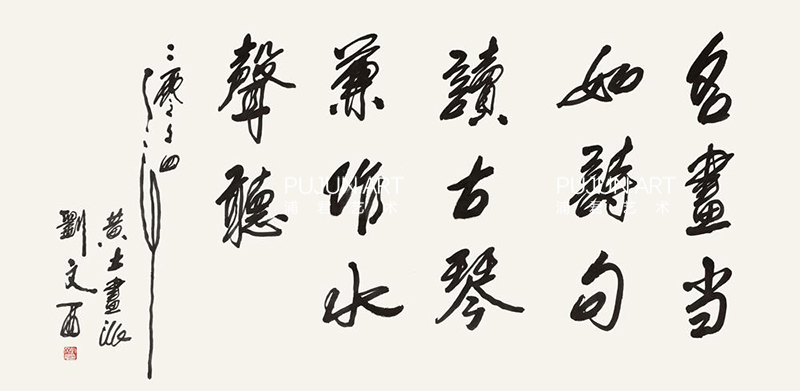 名畫当
如詩句
讀古琴
兼作水
聲聽
二零々四年
黄土畫派
劉文西
PUJUN ART
浦君艺术
PUJUN ART
浦君艺术